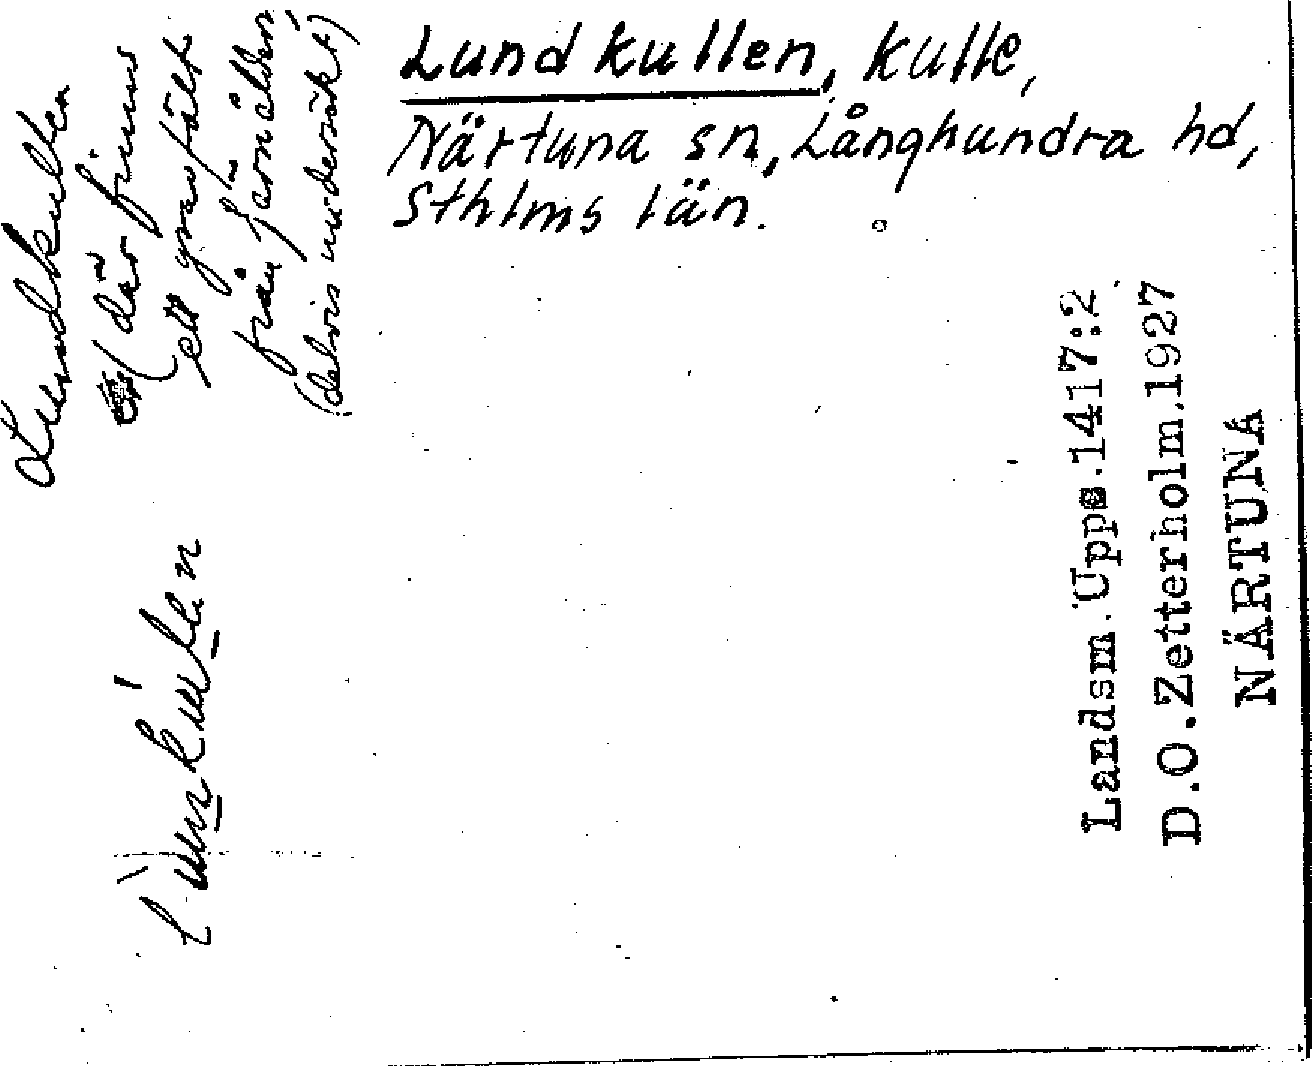 Lundkullen, kulle,
Närtuna sn, Långhundra hd,
Sthlms län.
Lundkullen
(där finns
ett gravfält
från järnåldern
(delvis undersökt)
Landsm. Upps. 1417:2
D.O. Zetterholm. 1927
NÄRTUNA